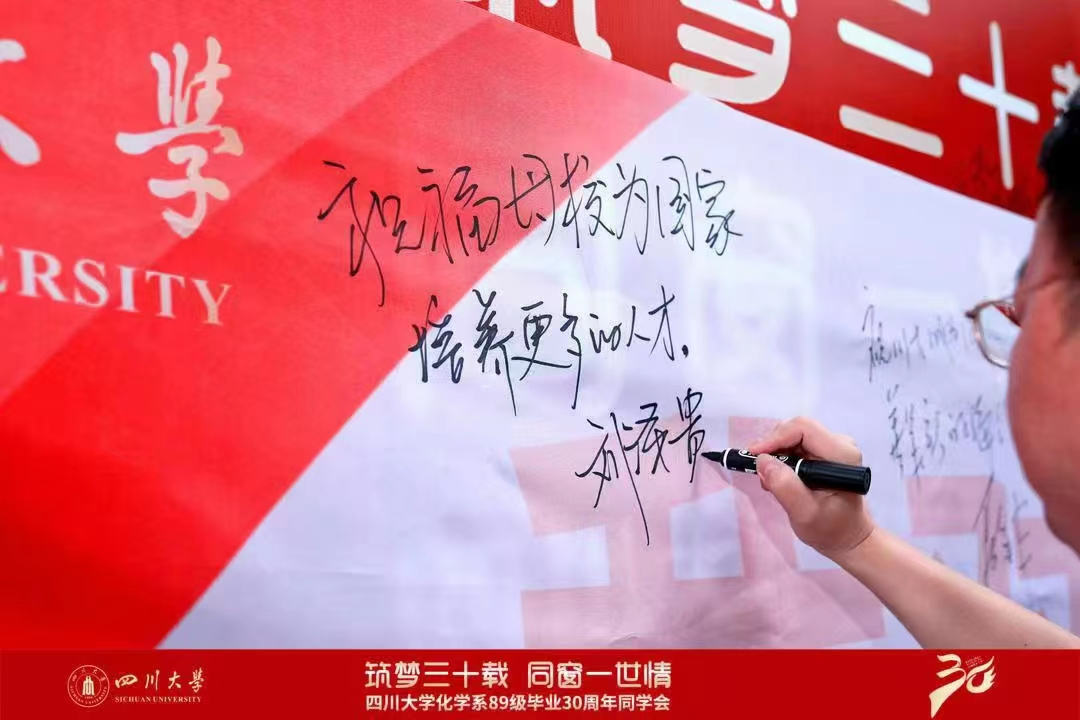 大学
ERSITY
梦三十
祝福母校为国家
培养更多的人才.
刘茂贵
四川大学
SICHUAN UNIVERSITY
筑梦三十载 同窗一世情
四川大学化学系89级毕业30周年同学会
30